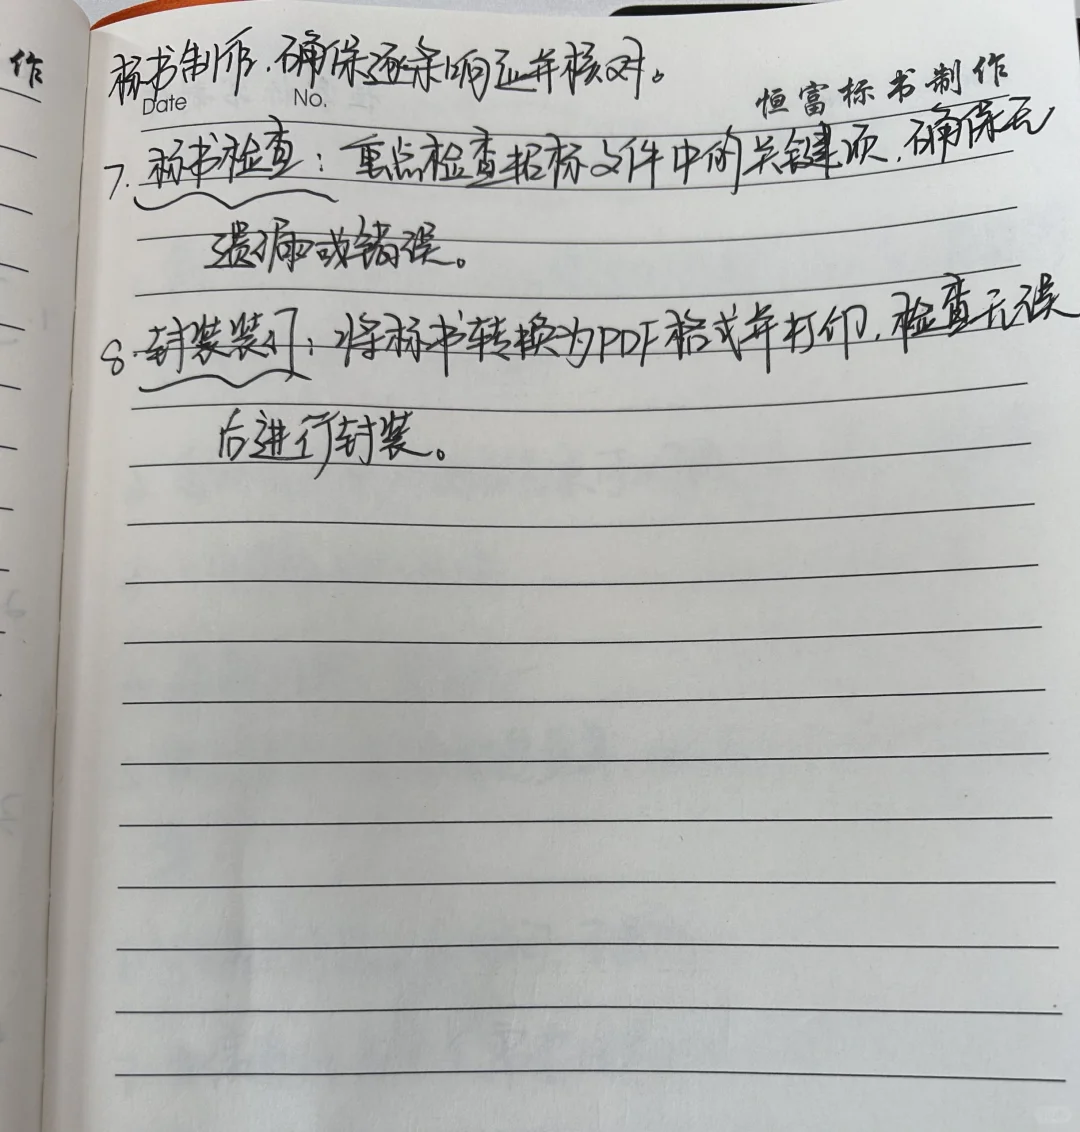 作
标书制作,确保逐条响应并核对。
Date No.
恒富标书制作
7. 标书检查:重点检查招标文件中的关键项,确保无
遗漏或错误。
8. 封装装订:将标书转换为PDF格式并打印,检查无误
后进行封装。